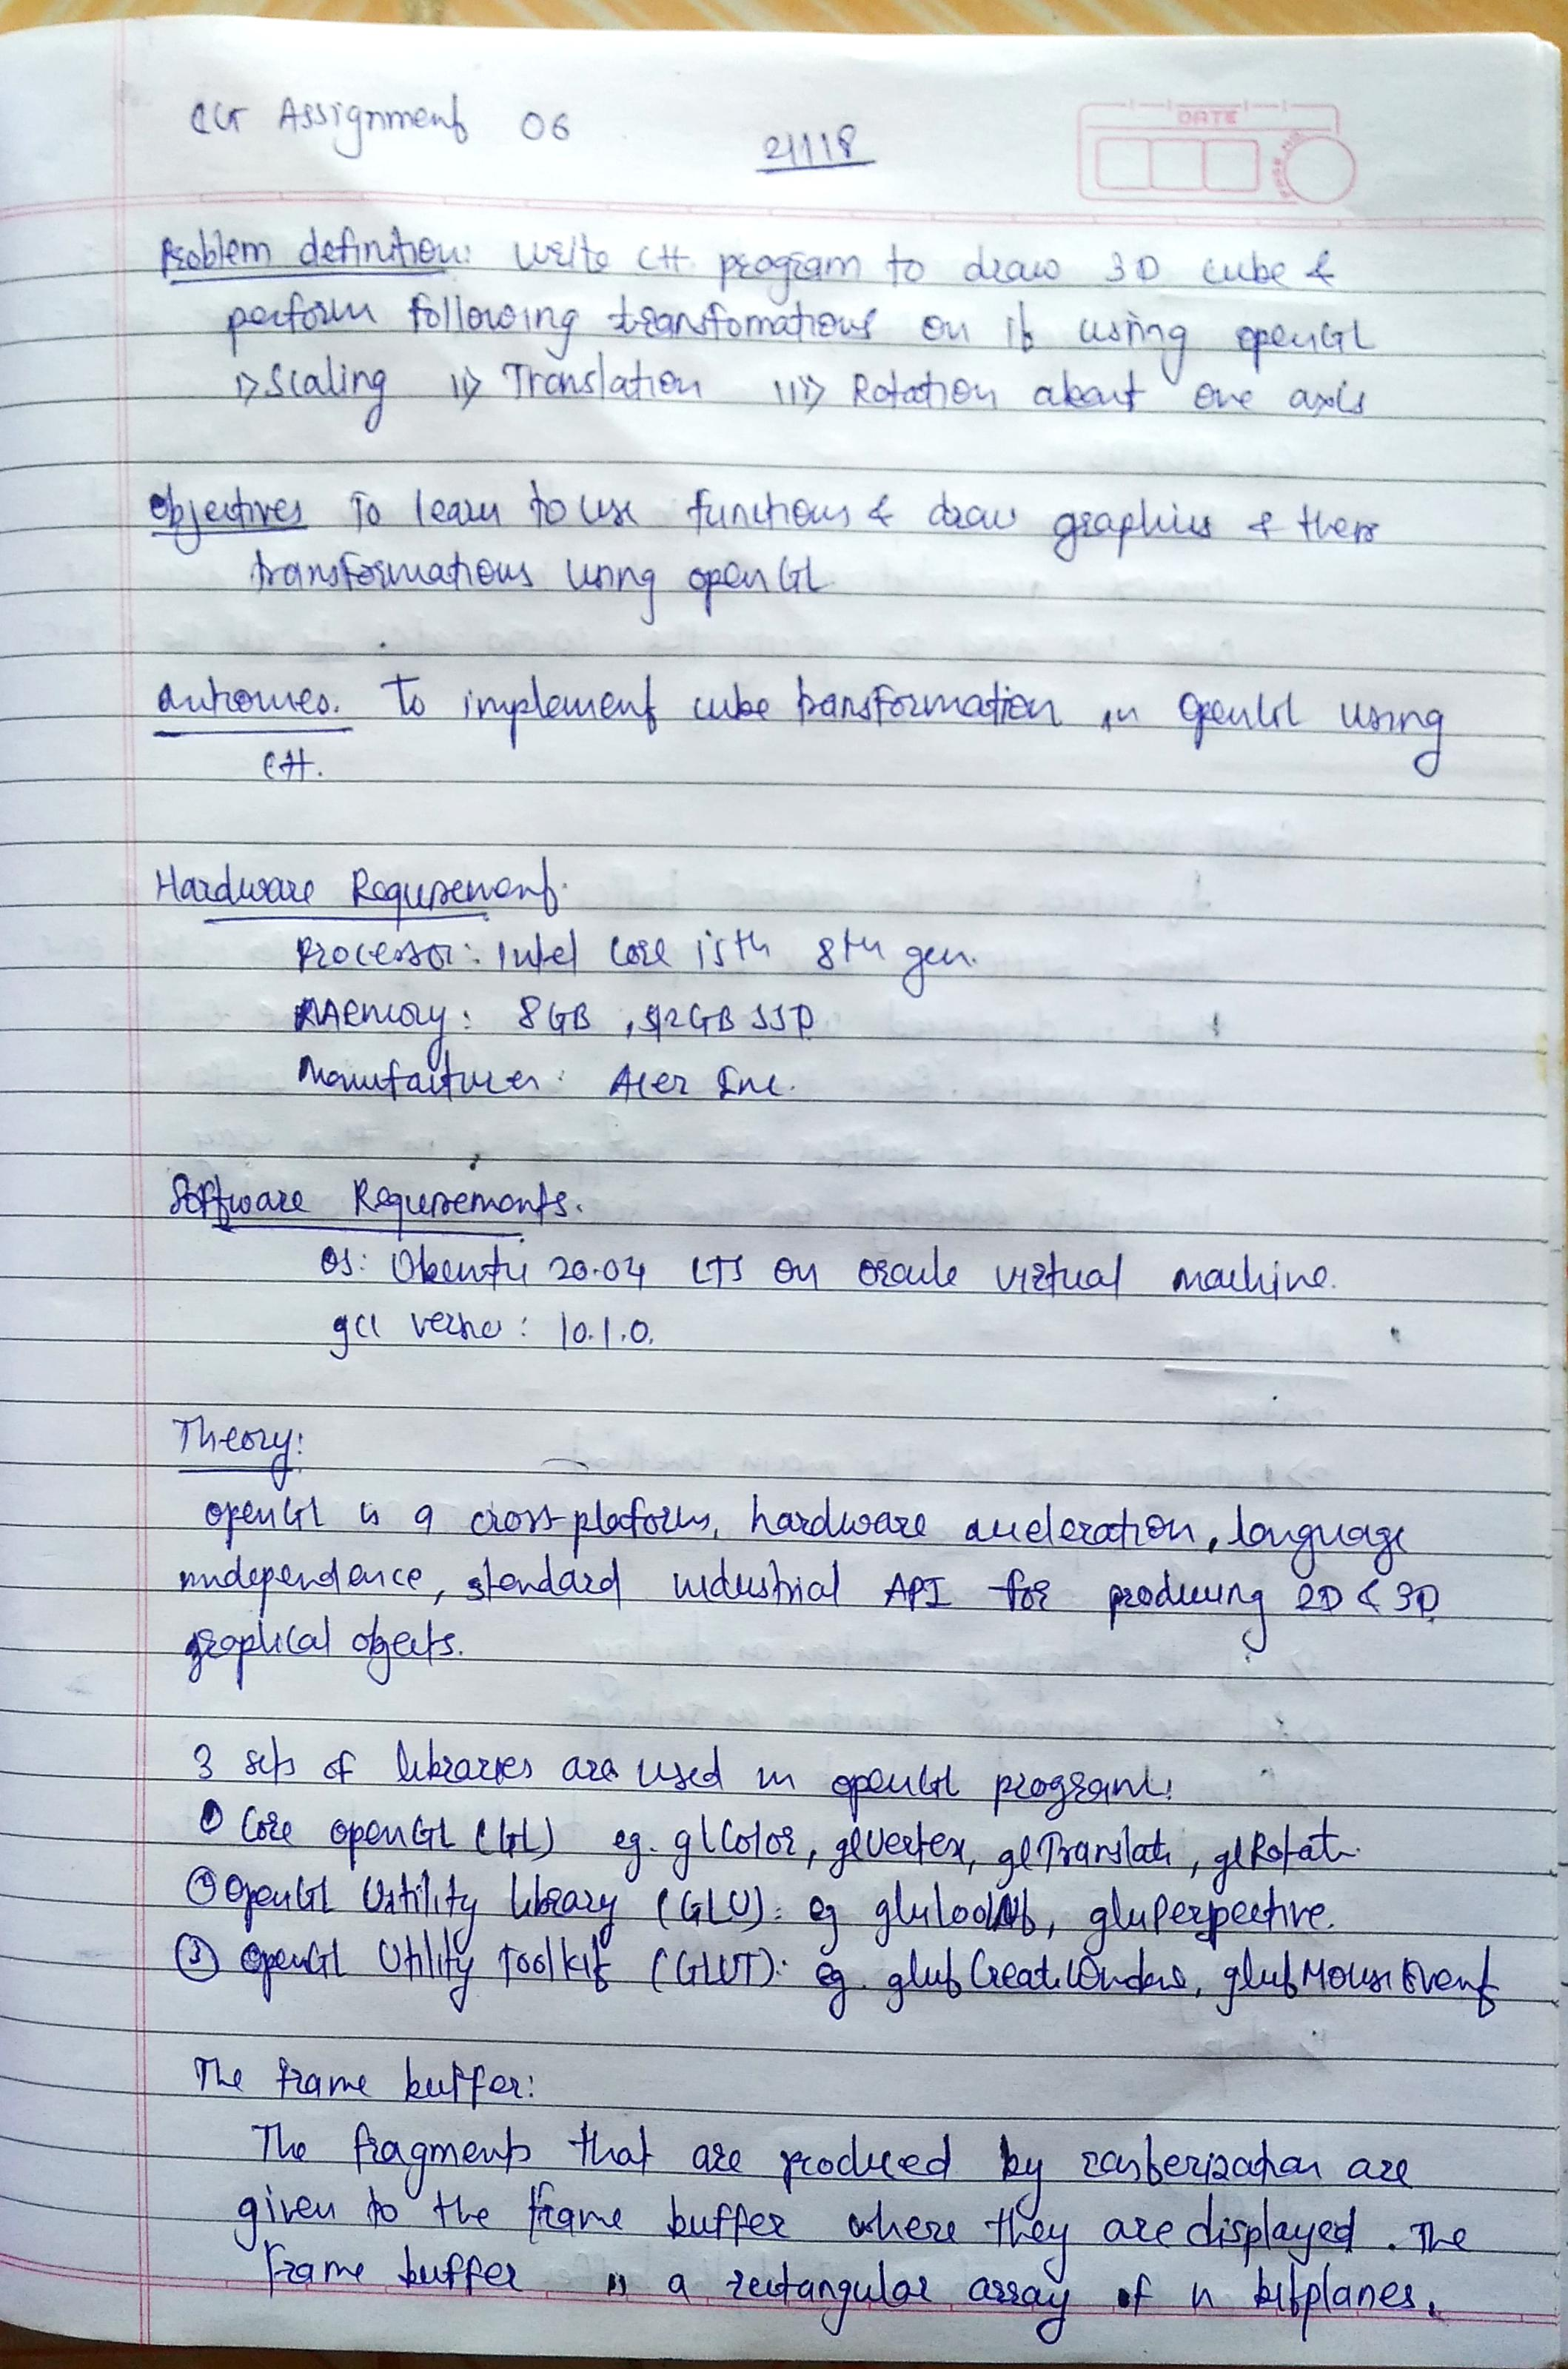 CG Assignment 06
21118
DATE
PAGE NO.
Problem definition: Write C++ program to draw 3D cube &
perform following transfomations on it using openGL
i> Scaling ii> Translation iii> Rotation about one axis
Objectives To learn to use functions & draw graphics & there
transformations using openGL
Outcomes. To implement cube transformation in OpenGL using
C++.
Hardware Requirement.
Processor: Intel Core i5th 8th gen.
Memory: 8GB, 512GB SSD
Manufacturer: Acer Inc.
Software Requirements.
OS: Ubuntu 20.04 LTS on oracle virtual machine.
gcc versno: 10.1.0.
Theory:
openGL is a cross-platform, hardware acceleration, language
independence, standard industrial API for producing 2D & 3D
graphical objects.
3 sets of libraries are used in openGL program:
① Core openGL (GL) eg. glColor, glvertex, glTranslate, glRotate
② OpenGL Utility library (GLU): eg gluLookAt, gluPerpective.
③ OpenGL Utility Toolkit (GLUT): eg. glutCreateWindow, glutMouseEvent
The frame buffer:
The fragments that are produced by rasterization are
given to the frame buffer where they are displayed. The
frame buffer is a rectangular array of n bitplanes.